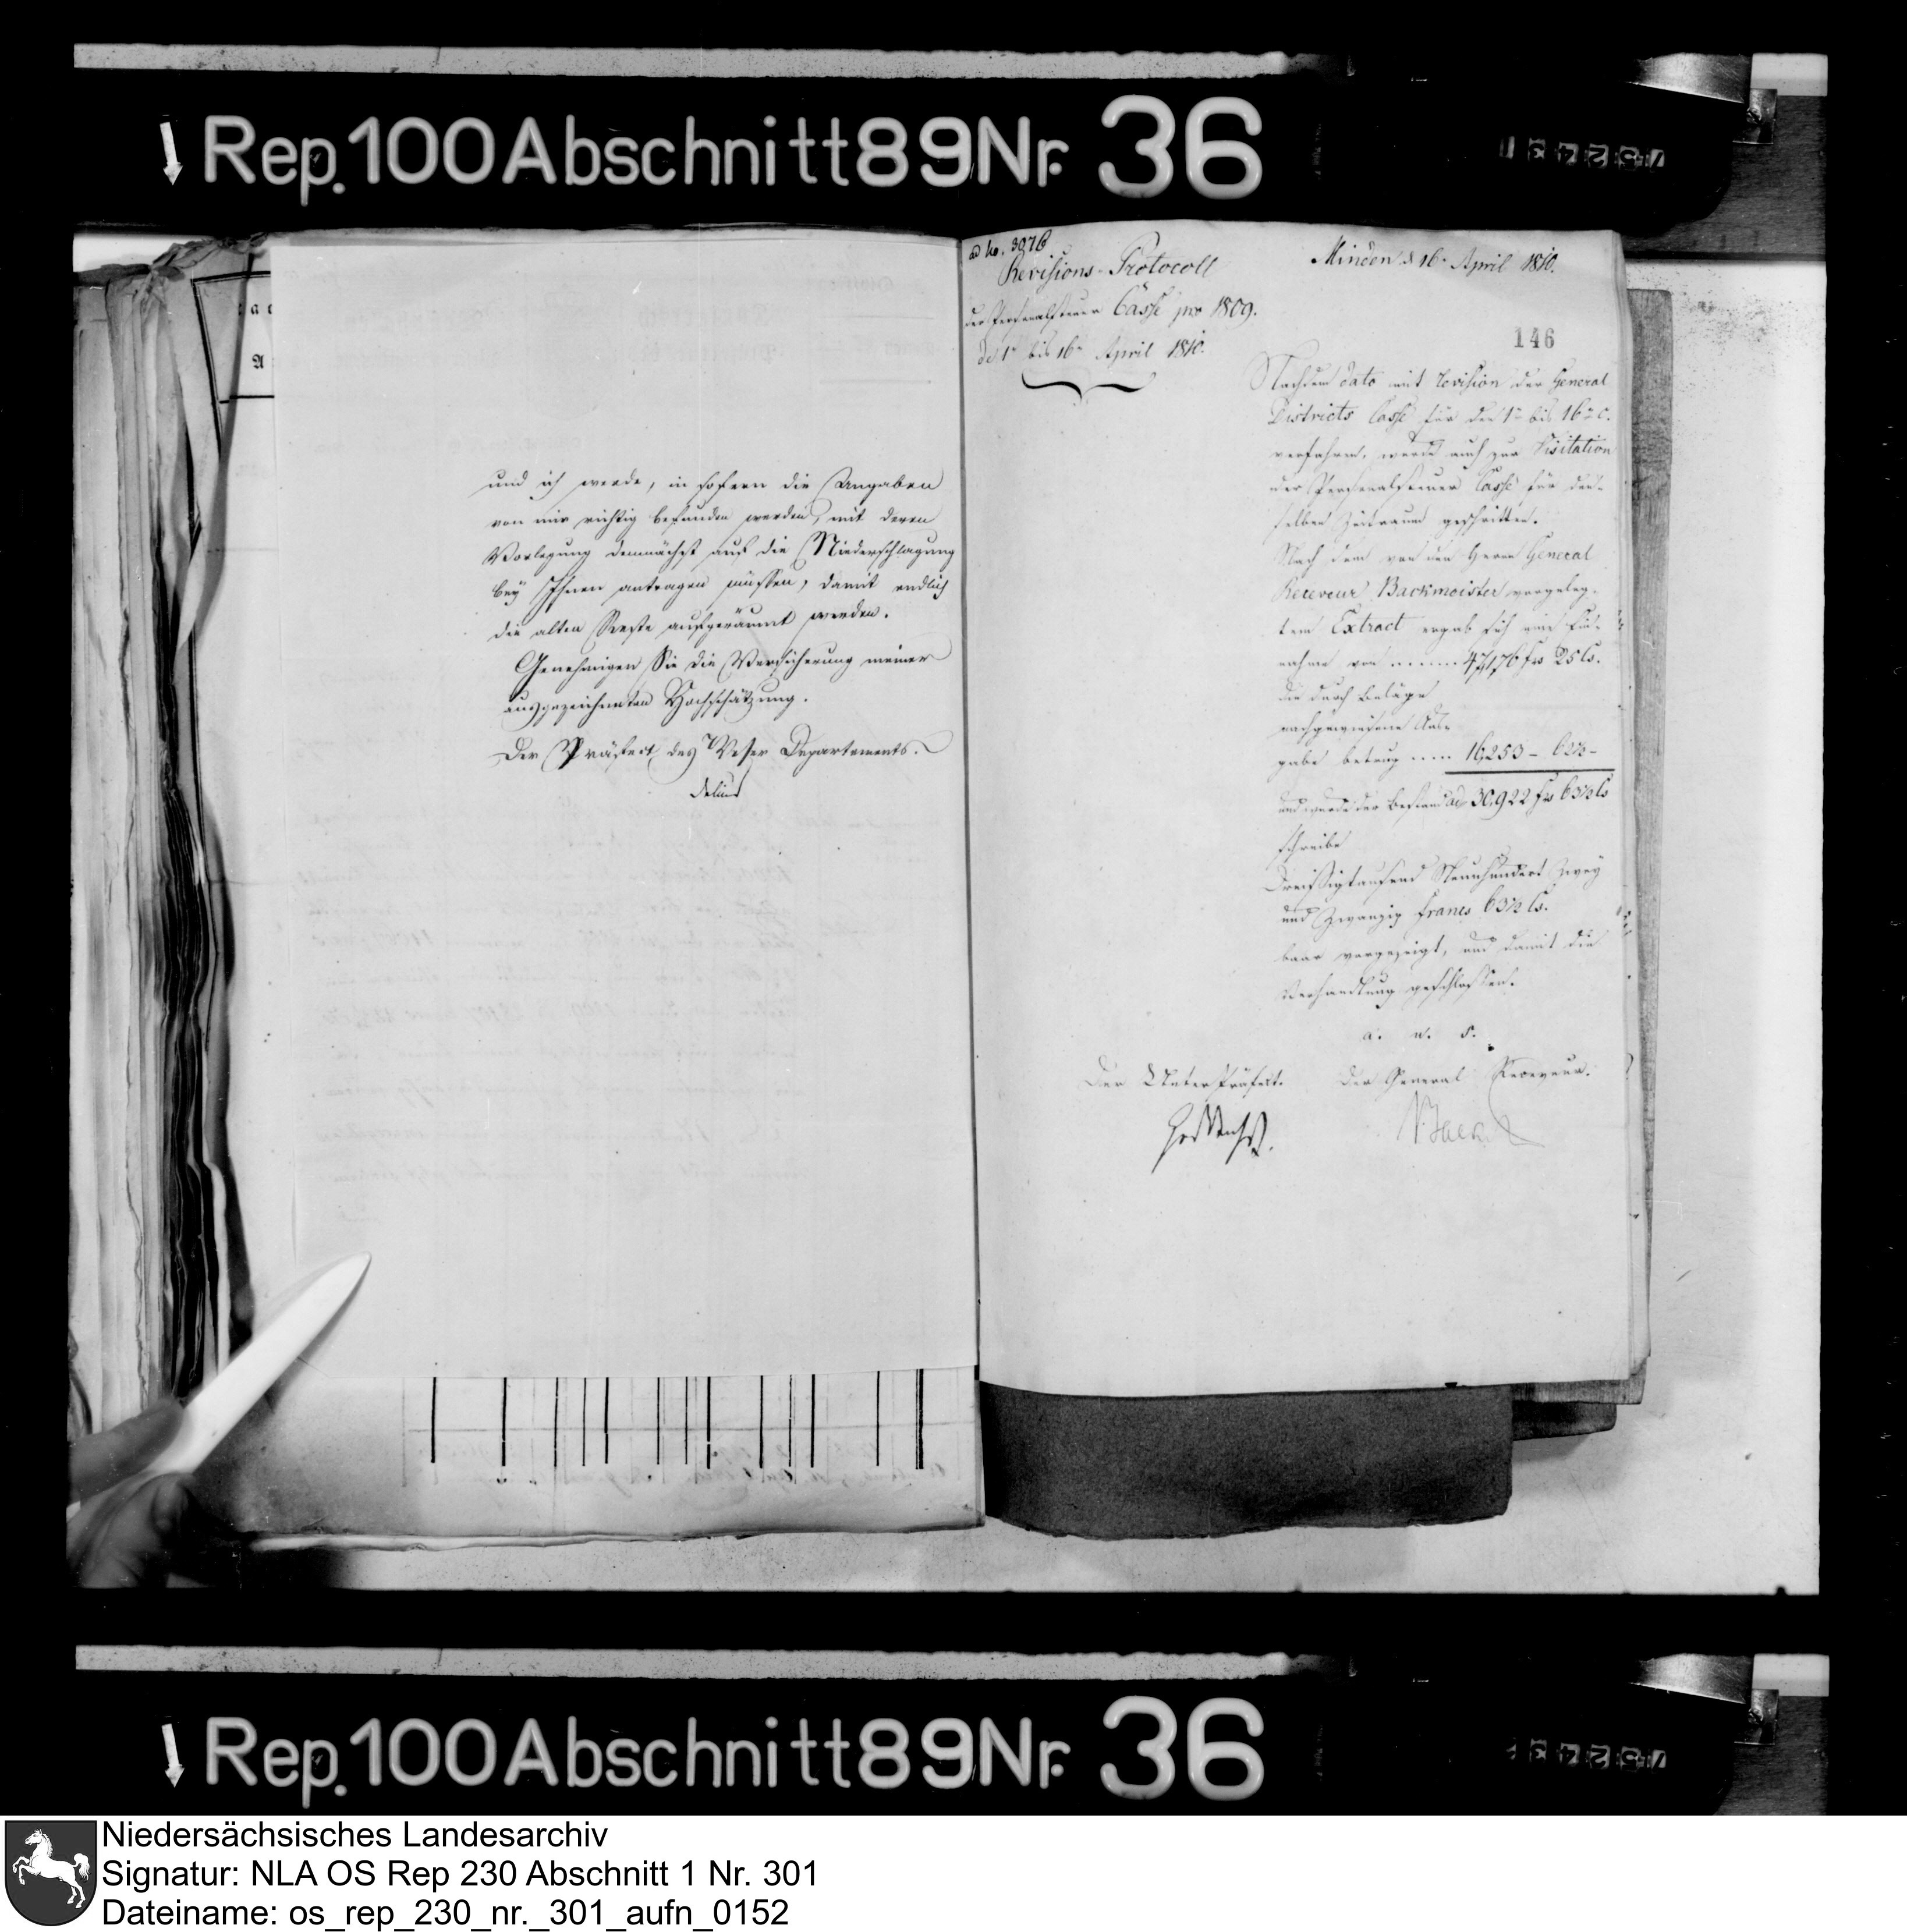 Rep. 100 Abschnitt 89 Nr. 36
und ich werde, in sofern die Angaben
von mir richtig befunden werden, mit deren
Vorlegung demnächst auf die Niederschlagung
bey Ihnen antragen müssen, damit endlich
die alten Reste aufgeräumt werden.
Genehmigen Sie die Versicherung meiner
ausgezeichneten Hochschätzung.
Der Präfect des Weser Departements.
Delius
ad No. 3076
Revisions-Protocoll
der Personalsteuer Casse pro 1809.
de 1n bis 16n April 1810.
Minden d 16n April 1810.
146
Nachdem dato mit Revision der General
Districts Casse für den 1n bis 16n c.
verfahren, wurde auch zur Visitation
der Personalsteuer Casse für den-
selben Zeitraum geschritten.
Nach dem von den Herrn General
Receveur Backmeister vorgeleg-
tem Extract ergab sich eine Ein-
nahme von ........ 47,176 frs 25 Cs.
die durch Beläge
nachgewiesene Aus-
gabe betrug ..... 16,253 - 62½ -
und wurde der Bestand ad 30,922 frs 63½ Cs
schreibe
Dreißigtausend Neunhundert Zwey
und Zwanzig Francs 63½ Cs.
baar vorgezeigt, und damit die
Verhandlung geschlossen.
a. u. s.
Der UnterPräfect. Der General Receveur.
Rep. 100 Abschnitt 89 Nr. 36
Niedersächsisches Landesarchiv
Signatur: NLA OS Rep 230 Abschnitt 1 Nr. 301
Dateiname: os_rep_230_nr._301_aufn_0152